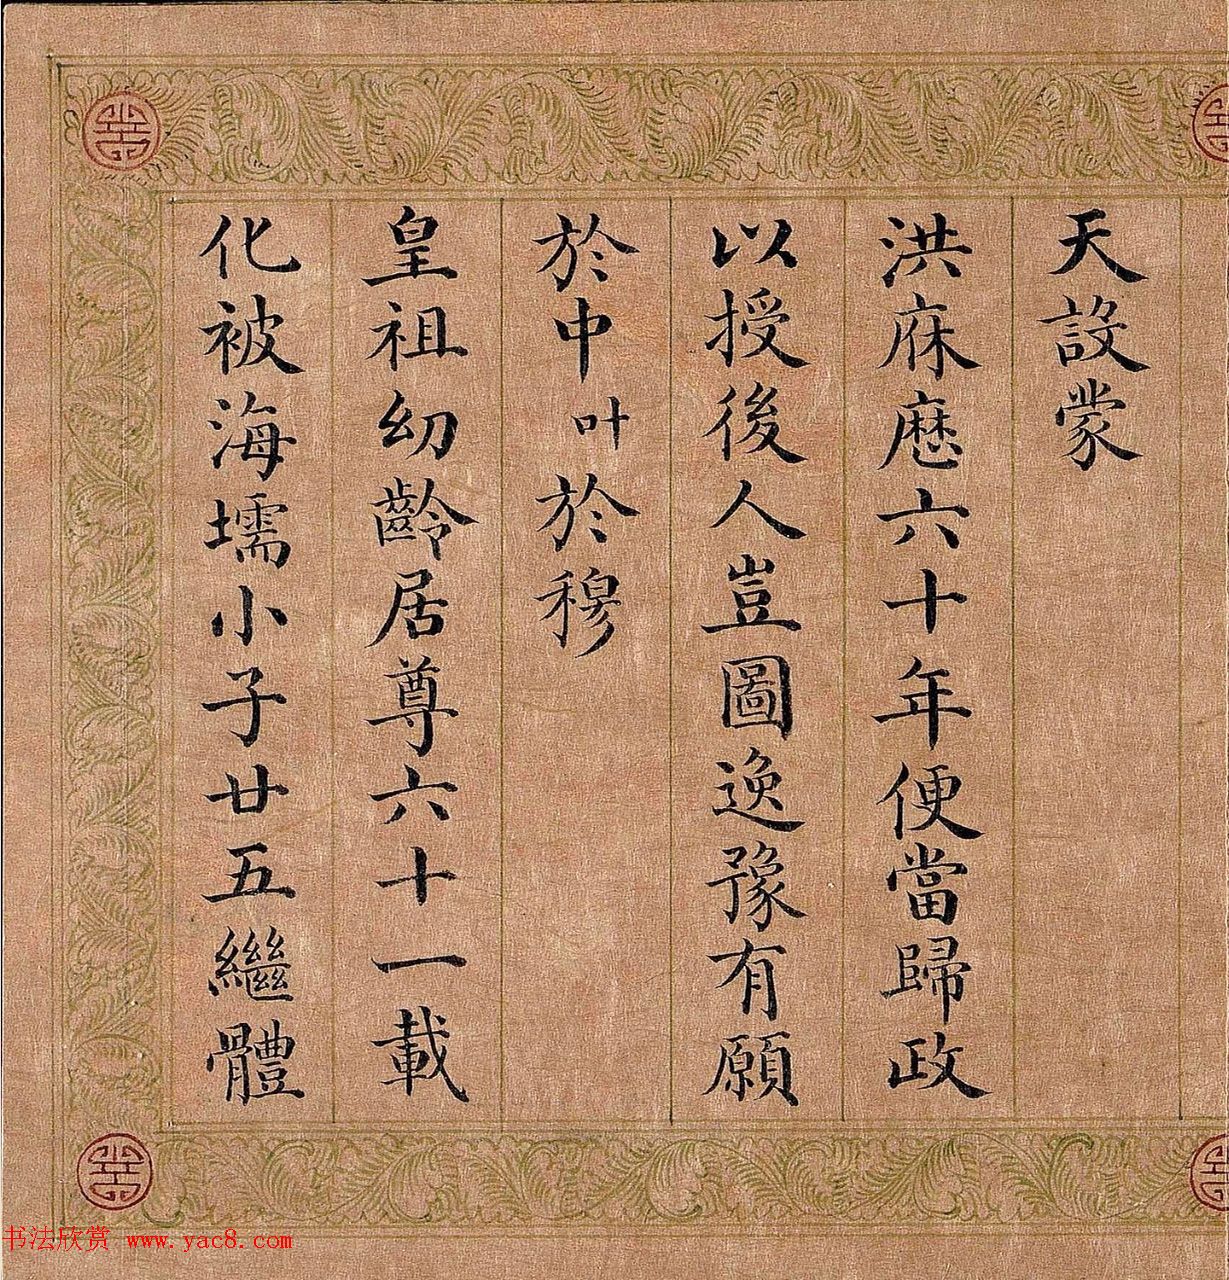 天設蒙
洪庥歷六十年便當歸政
以授後人豈圖逸豫有願
於中叶於穆
皇祖幼齡居尊六十一載
化被海壖小子廿五繼體
书法欣赏 www.yac8.com